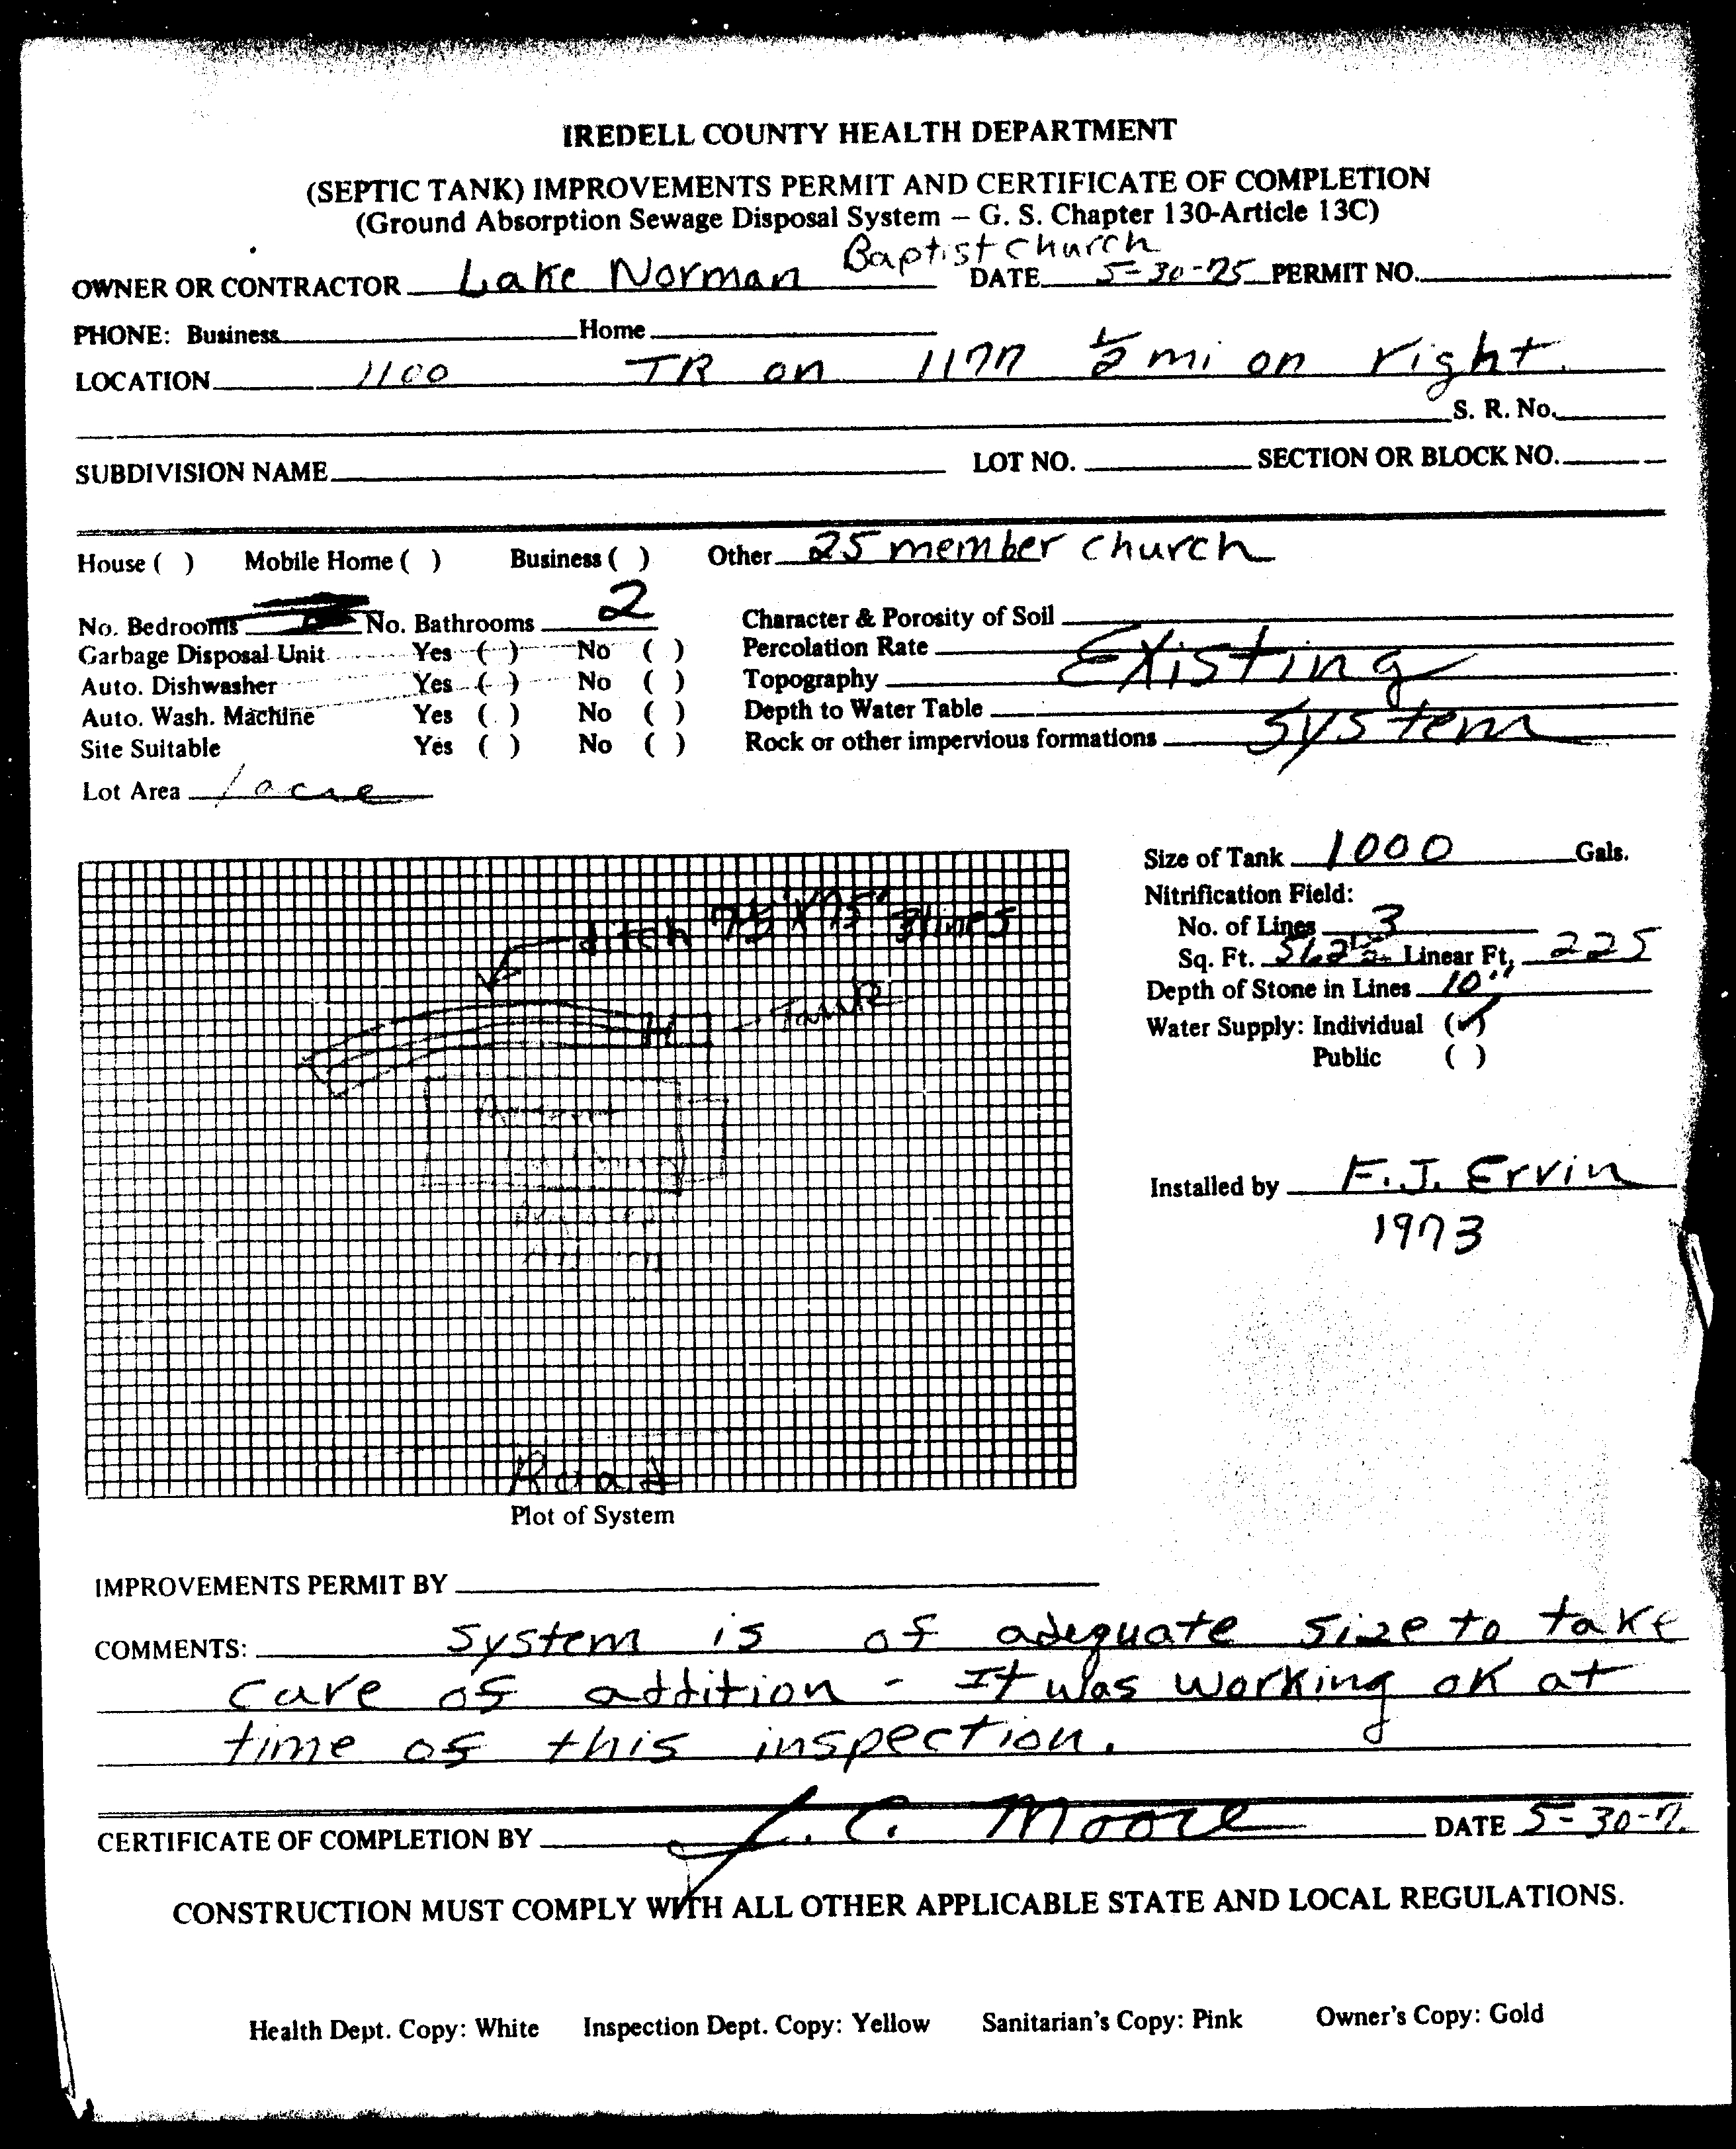 IREDELL COUNTY HEALTH DEPARTMENT
(SEPTIC TANK) IMPROVEMENTS PERMIT AND CERTIFICATE OF COMPLETION
(Ground Absorption Sewage Disposal System – G. S. Chapter 130-Article 13C)
Baptist Church
OWNER OR CONTRACTOR Lake Norman DATE 5-30-75 PERMIT NO.
PHONE: Business Home
LOCATION 1100 TR on 1177 1/2 mi on right.
S. R. No.
SUBDIVISION NAME LOT NO. SECTION OR BLOCK NO.
House ( ) Mobile Home ( ) Business ( ) Other 25 member church
No. Bedrooms No. Bathrooms 2 Character & Porosity of Soil
Garbage Disposal Unit Yes ( ) No ( ) Percolation Rate Existing
Auto. Dishwasher Yes ( ) No ( ) Topography
Auto. Wash. Machine Yes ( ) No ( ) Depth to Water Table System
Site Suitable Yes ( ) No ( ) Rock or other impervious formations
Lot Area 1 acre
Size of Tank 1000 Gals.
Nitrification Field:
No. of Lines 3
Sq. Ft. Linear Ft. 225
Depth of Stone in Lines 10"
Water Supply: Individual (✓)
Public ( )
ditch 75' X 75' 3 lines
Tank
Installed by F.J. Ervin
1973
Road
Plot of System
IMPROVEMENTS PERMIT BY
COMMENTS: System is of adequate size to take
care of addition - It was working ok at
time of this inspection.
CERTIFICATE OF COMPLETION BY J. C. Moore DATE 5-30-7
CONSTRUCTION MUST COMPLY WITH ALL OTHER APPLICABLE STATE AND LOCAL REGULATIONS.
Health Dept. Copy: White Inspection Dept. Copy: Yellow Sanitarian's Copy: Pink Owner's Copy: Gold